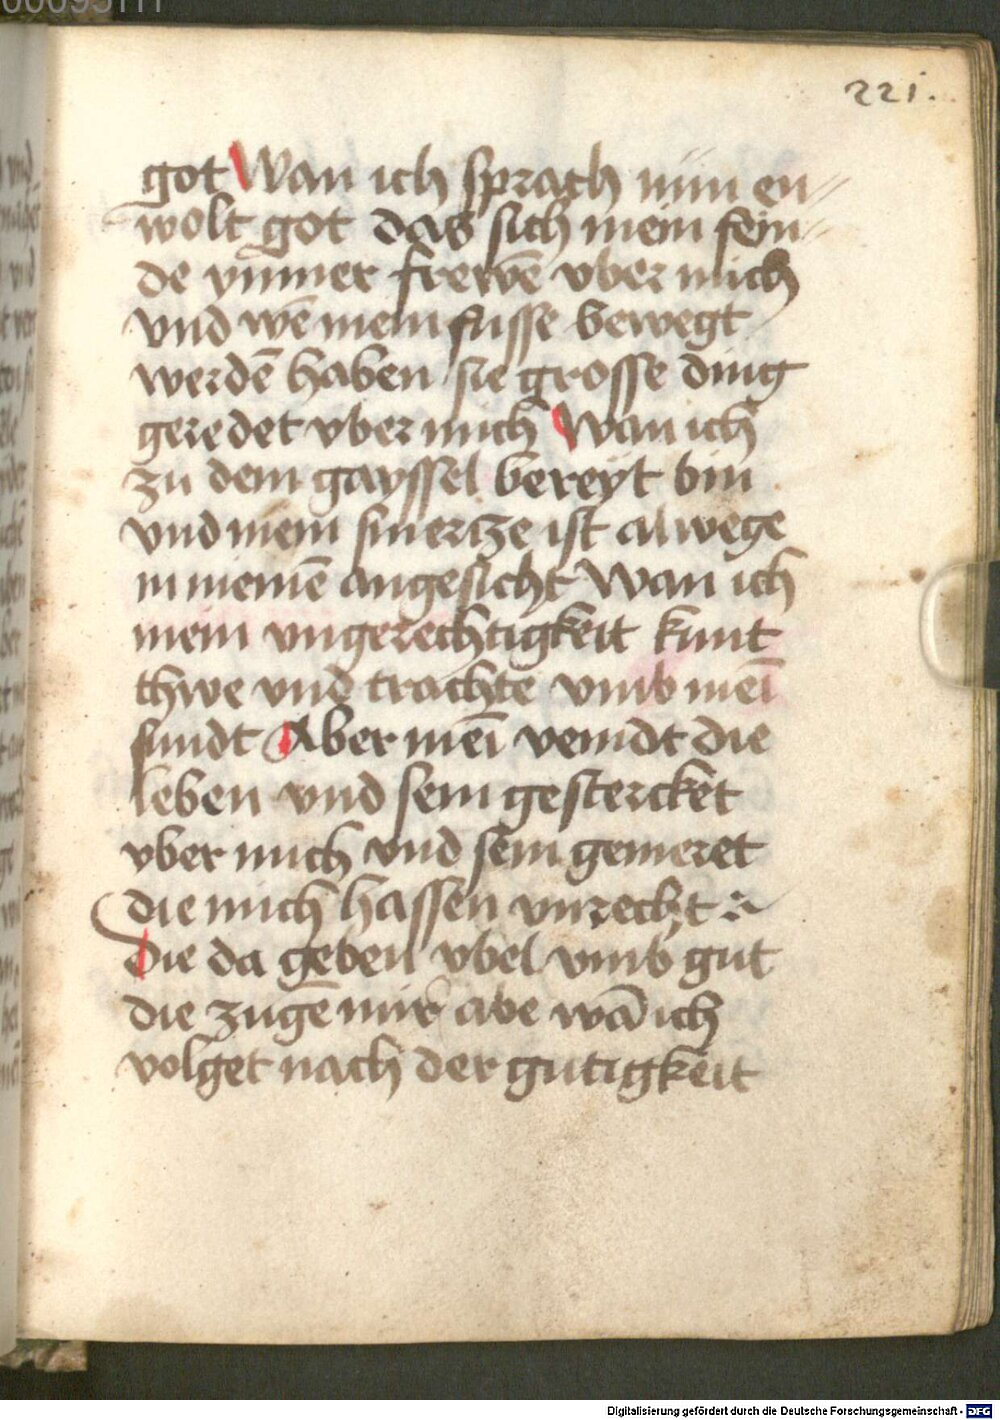 221.
got Wan ich sprach nim en//
wolt got das sich mein fein//
de ymmer frewē vber mich
vnd wē mein fusse bewegt
werdē haben sie grosse ding
geredet vber mich Wan ich
zu dem gayssel bereyt bin
vnd mein smertze ist alwege
in meinē angesicht Wan ich
mein vngerechtigkeit kunt
thwe vnd trachte vmb meī
sundt Aber meī veindt die
leben vnd sein gestercket
vber mich vnd sein gemeret
die mich hassen vnrecht
Die da geben vbel vmb gut
die zugē mir abe wā ich
volget nach der gutigkeit
Digitalisierung gefördert durch die Deutsche Forschungsgemeinschaft - DFG